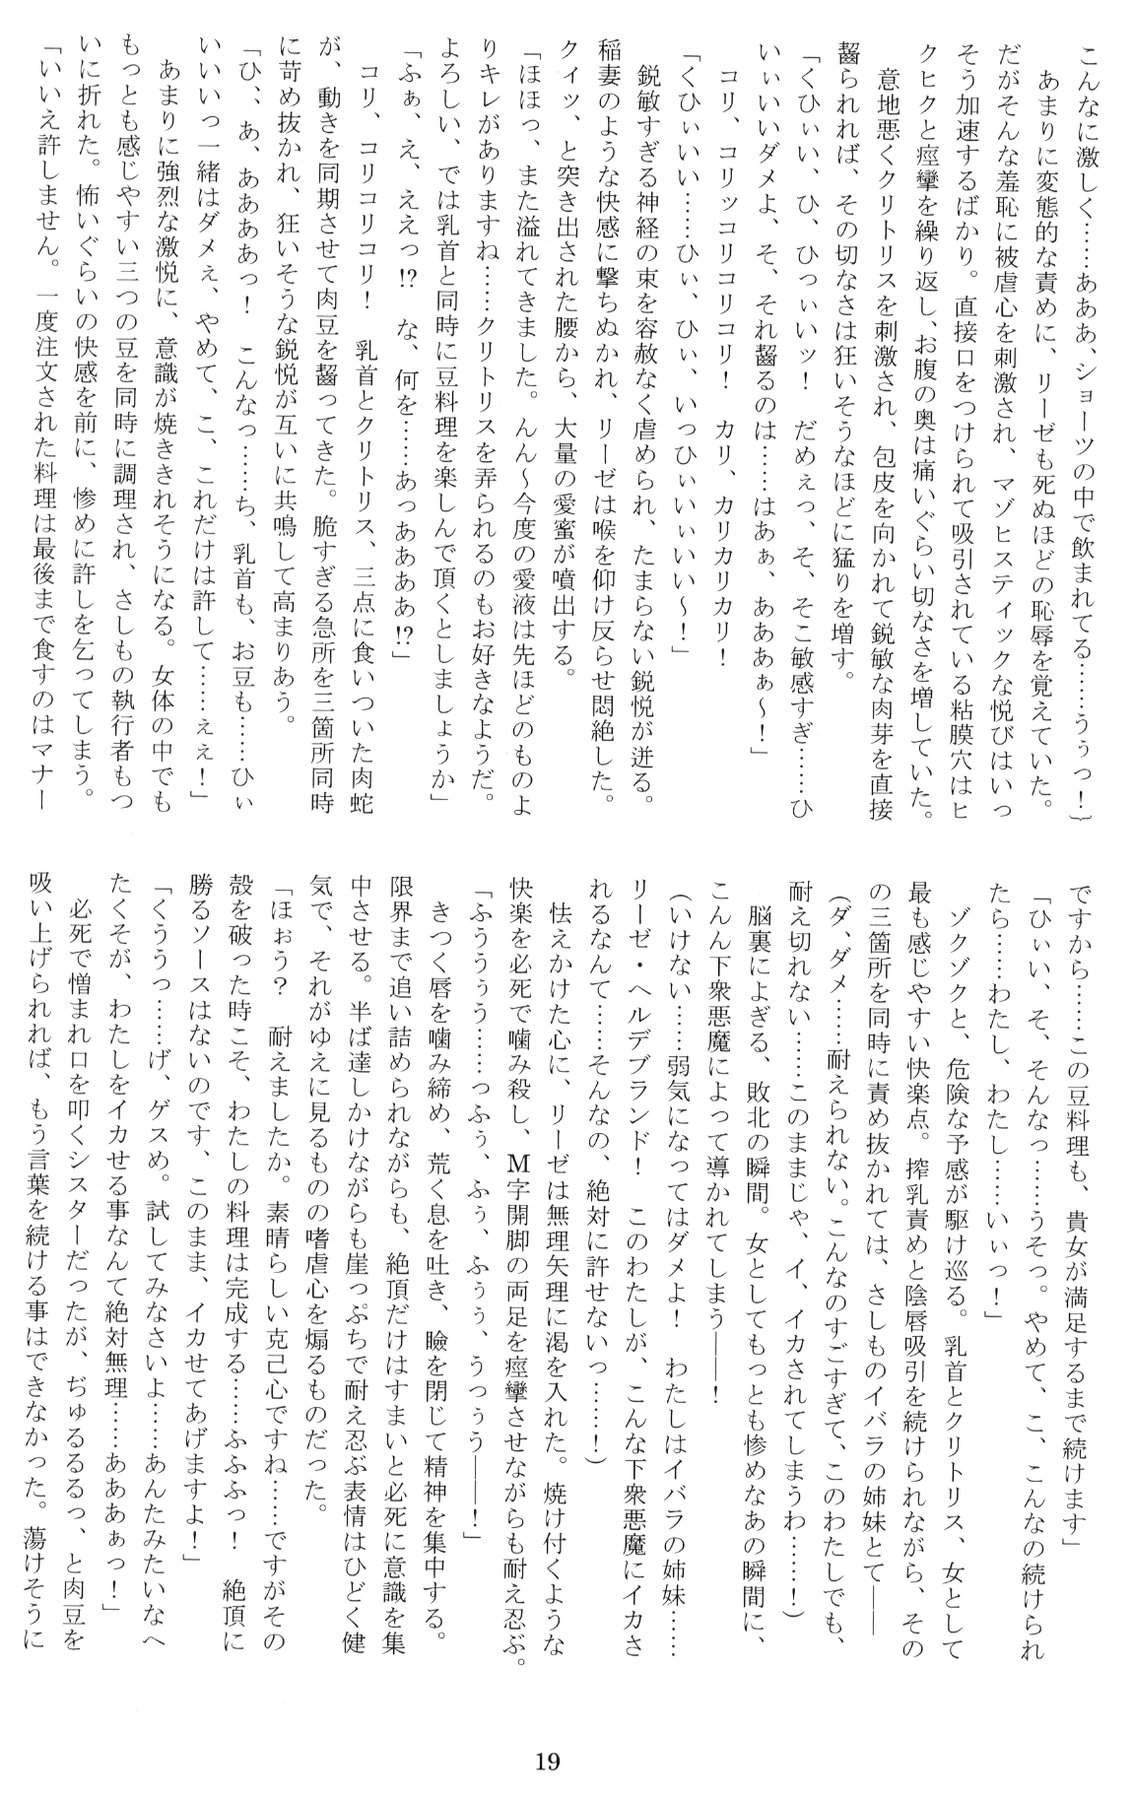 こんなに激しく……あああ、ショーツの中で飲まれてる……うぅっ！｝
　あまりに変態的な責めに、リーゼも死ぬほどの恥辱を覚えていた。
だがそんな羞恥に被虐心を刺激され、マゾヒスティックな悦びはいっ
そう加速するばかり。直接口をつけられて吸引されている粘膜穴はヒ
クヒクと痙攣を繰り返し、お腹の奥は痛いぐらい切なさを増していた。
　意地悪くクリトリスを刺激され、包皮を向かれて鋭敏な肉芽を直接
齧られれば、その切なさは狂いそうなほどに猛りを増す。
「くひぃい、ひ、ひっぃいッ！　だめぇっ、そ、そこ敏感すぎ……ひ
いぃいいダメよ、そ、それ齧るのは……はあぁ、あああぁ～！」
　コリ、コリッコリコリコリ！　カリ、カリカリカリ！
「くひぃいい……ひぃ、ひぃ、いっひぃいぃいい～！」
　鋭敏すぎる神経の束を容赦なく虐められ、たまらない鋭悦が迸る。
稲妻のような快感に撃ちぬかれ、リーゼは喉を仰け反らせ悶絶した。
クィッ、と突き出された腰から、大量の愛蜜が噴出する。
「ほほっ、また溢れてきました。んん～今度の愛液は先ほどのものよ
りキレがありますね……クリトリスを弄られるのもお好きなようだ。
よろしい、では乳首と同時に豆料理を楽しんで頂くとしましょうか」
「ふぁ、え、ええっ!?　な、何を……あっああああ!?」
　コリ、コリコリコリ！　乳首とクリトリス、三点に食いついた肉蛇
が、動きを同期させて肉豆を齧ってきた。脆すぎる急所を三箇所同時
に苛め抜かれ、狂いそうな鋭悦が互いに共鳴して高まりあう。
「ひ、、あ、ああああっ！　こんなっ……ち、乳首も、お豆も……ひぃ
いいいっ一緒はダメぇ、やめて、こ、これだけは許して……ぇぇ！」
　あまりに強烈な激悦に、意識が焼ききれそうになる。女体の中でも
もっとも感じやすい三つの豆を同時に調理され、さしもの執行者もつ
いに折れた。怖いぐらいの快感を前に、惨めに許しを乞ってしまう。
「いいえ許しません。一度注文された料理は最後まで食すのはマナー
ですから……この豆料理も、貴女が満足するまで続けます」
「ひぃい、そ、そんなっ……うそっ。やめて、こ、こんなの続けられ
たら……わたし、わたし……いぃっ！」
　ゾクゾクと、危険な予感が駆け巡る。乳首とクリトリス、女として
最も感じやすい快楽点。搾乳責めと陰唇吸引を続けられながら、その
の三箇所を同時に責め抜かれては、さしものイバラの姉妹とて――
（ダ、ダメ……耐えられない。こんなのすごすぎて、このわたしでも、
耐え切れない……このままじゃ、イ、イカされてしまうわ……！）
　脳裏によぎる、敗北の瞬間。女としてもっとも惨めなあの瞬間に、
こんん下衆悪魔によって導かれてしまう――！
（いけない……弱気になってはダメよ！　わたしはイバラの姉妹……
リーゼ・ヘルデブランド！　このわたしが、こんな下衆悪魔にイカさ
れるなんて……そんなの、絶対に許せないっ……！）
　怯えかけた心に、リーゼは無理矢理に渇を入れた。焼け付くような
快楽を必死で噛み殺し、Ｍ字開脚の両足を痙攣させながらも耐え忍ぶ。
「ふううぅう……っふぅ、ふぅ、ふぅぅ、うっぅう――！」
　きつく唇を噛み締め、荒く息を吐き、瞼を閉じて精神を集中する。
限界まで追い詰められながらも、絶頂だけはすまいと必死に意識を集
中させる。半ば達しかけながらも崖っぷちで耐え忍ぶ表情はひどく健
気で、それがゆえに見るものの嗜虐心を煽るものだった。
「ほぉう？　耐えましたか。素晴らしい克己心ですね……ですがその
殻を破った時こそ、わたしの料理は完成する……ふふふっ！　絶頂に
勝るソースはないのです、このまま、イカせてあげますよ！」
「くううっ……げ、ゲスめ。試してみなさいよ……あんたみたいなへ
たくそが、わたしをイカせる事なんて絶対無理……あああぁっ！」
　必死で憎まれ口を叩くシスターだったが、ぢゅるるるっ、と肉豆を
吸い上げられれば、もう言葉を続ける事はできなかった。蕩けそうに
19